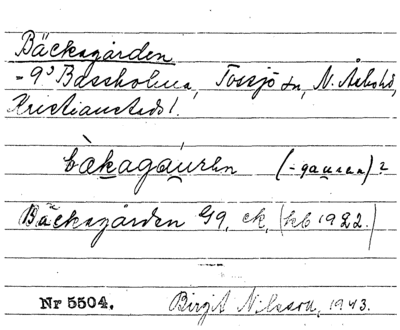 Bäckagården
- 9⁰ Bassholma, Tossjö sn, N. Åsbohd,
Kristianstads l.
bàkagáuren (-gauren)?
Bäckagården Gg, ek, (kb 1922.)
Nr 5504. Birgit Nilsson, 1943.